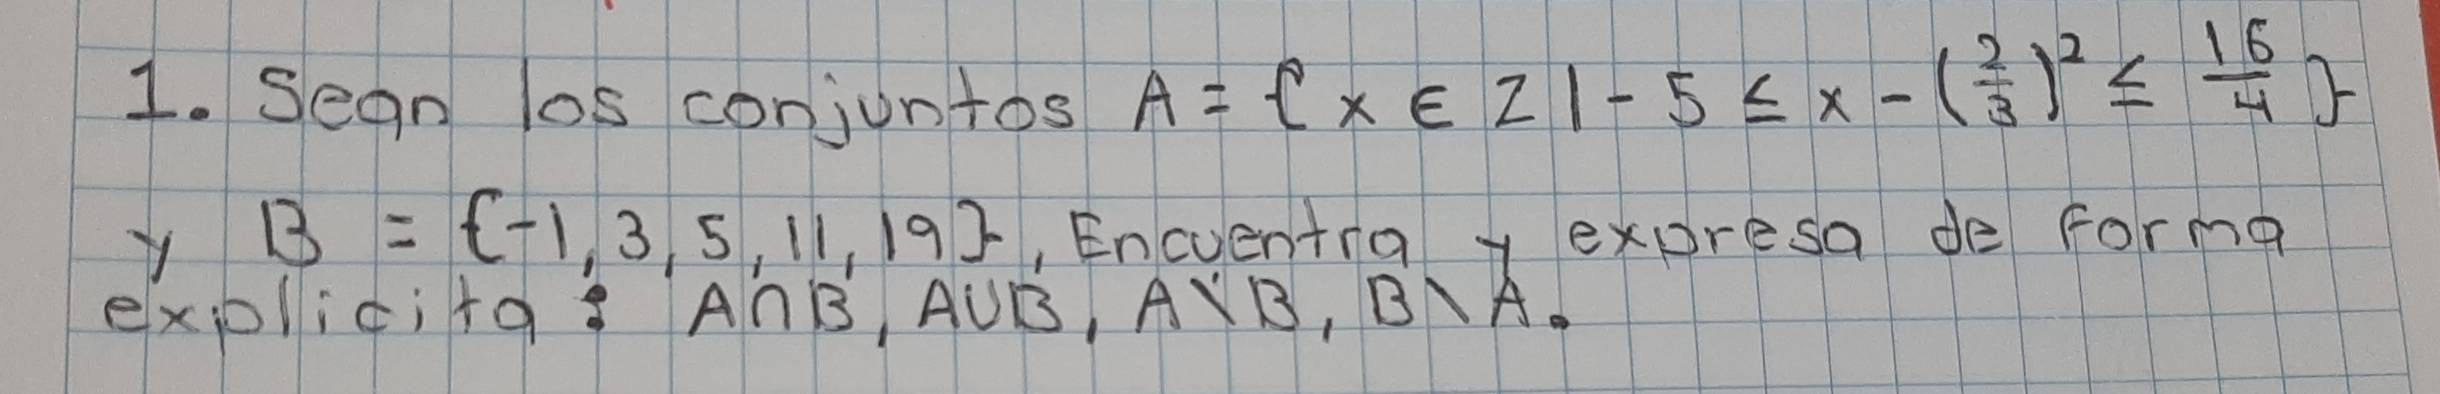 1. Sean los conjuntos A = {x ∈ Z | -5 ≤ x - (2/3)² ≤ 16/4}
y B = {-1, 3, 5, 11, 19}, Encuentra y expresa de forma
explicita : A∩B, A∪B, A\B, B\A.